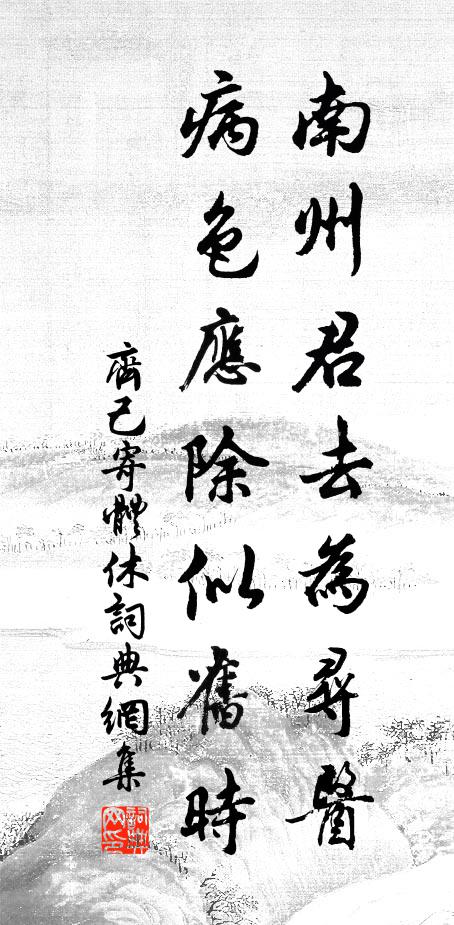 南州君去為尋醫
病色應除似舊時
齊己寄體休詞典網集